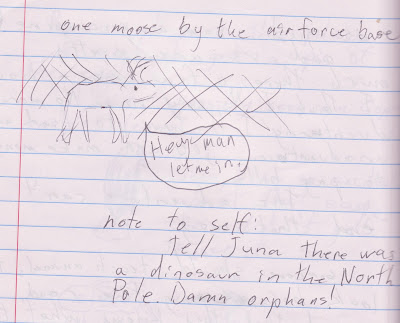 one moose by the airforce base
Hey man
let me in.
note to self:
tell Juna there was
a dinosaur in the North
Pole. Damn orphans!